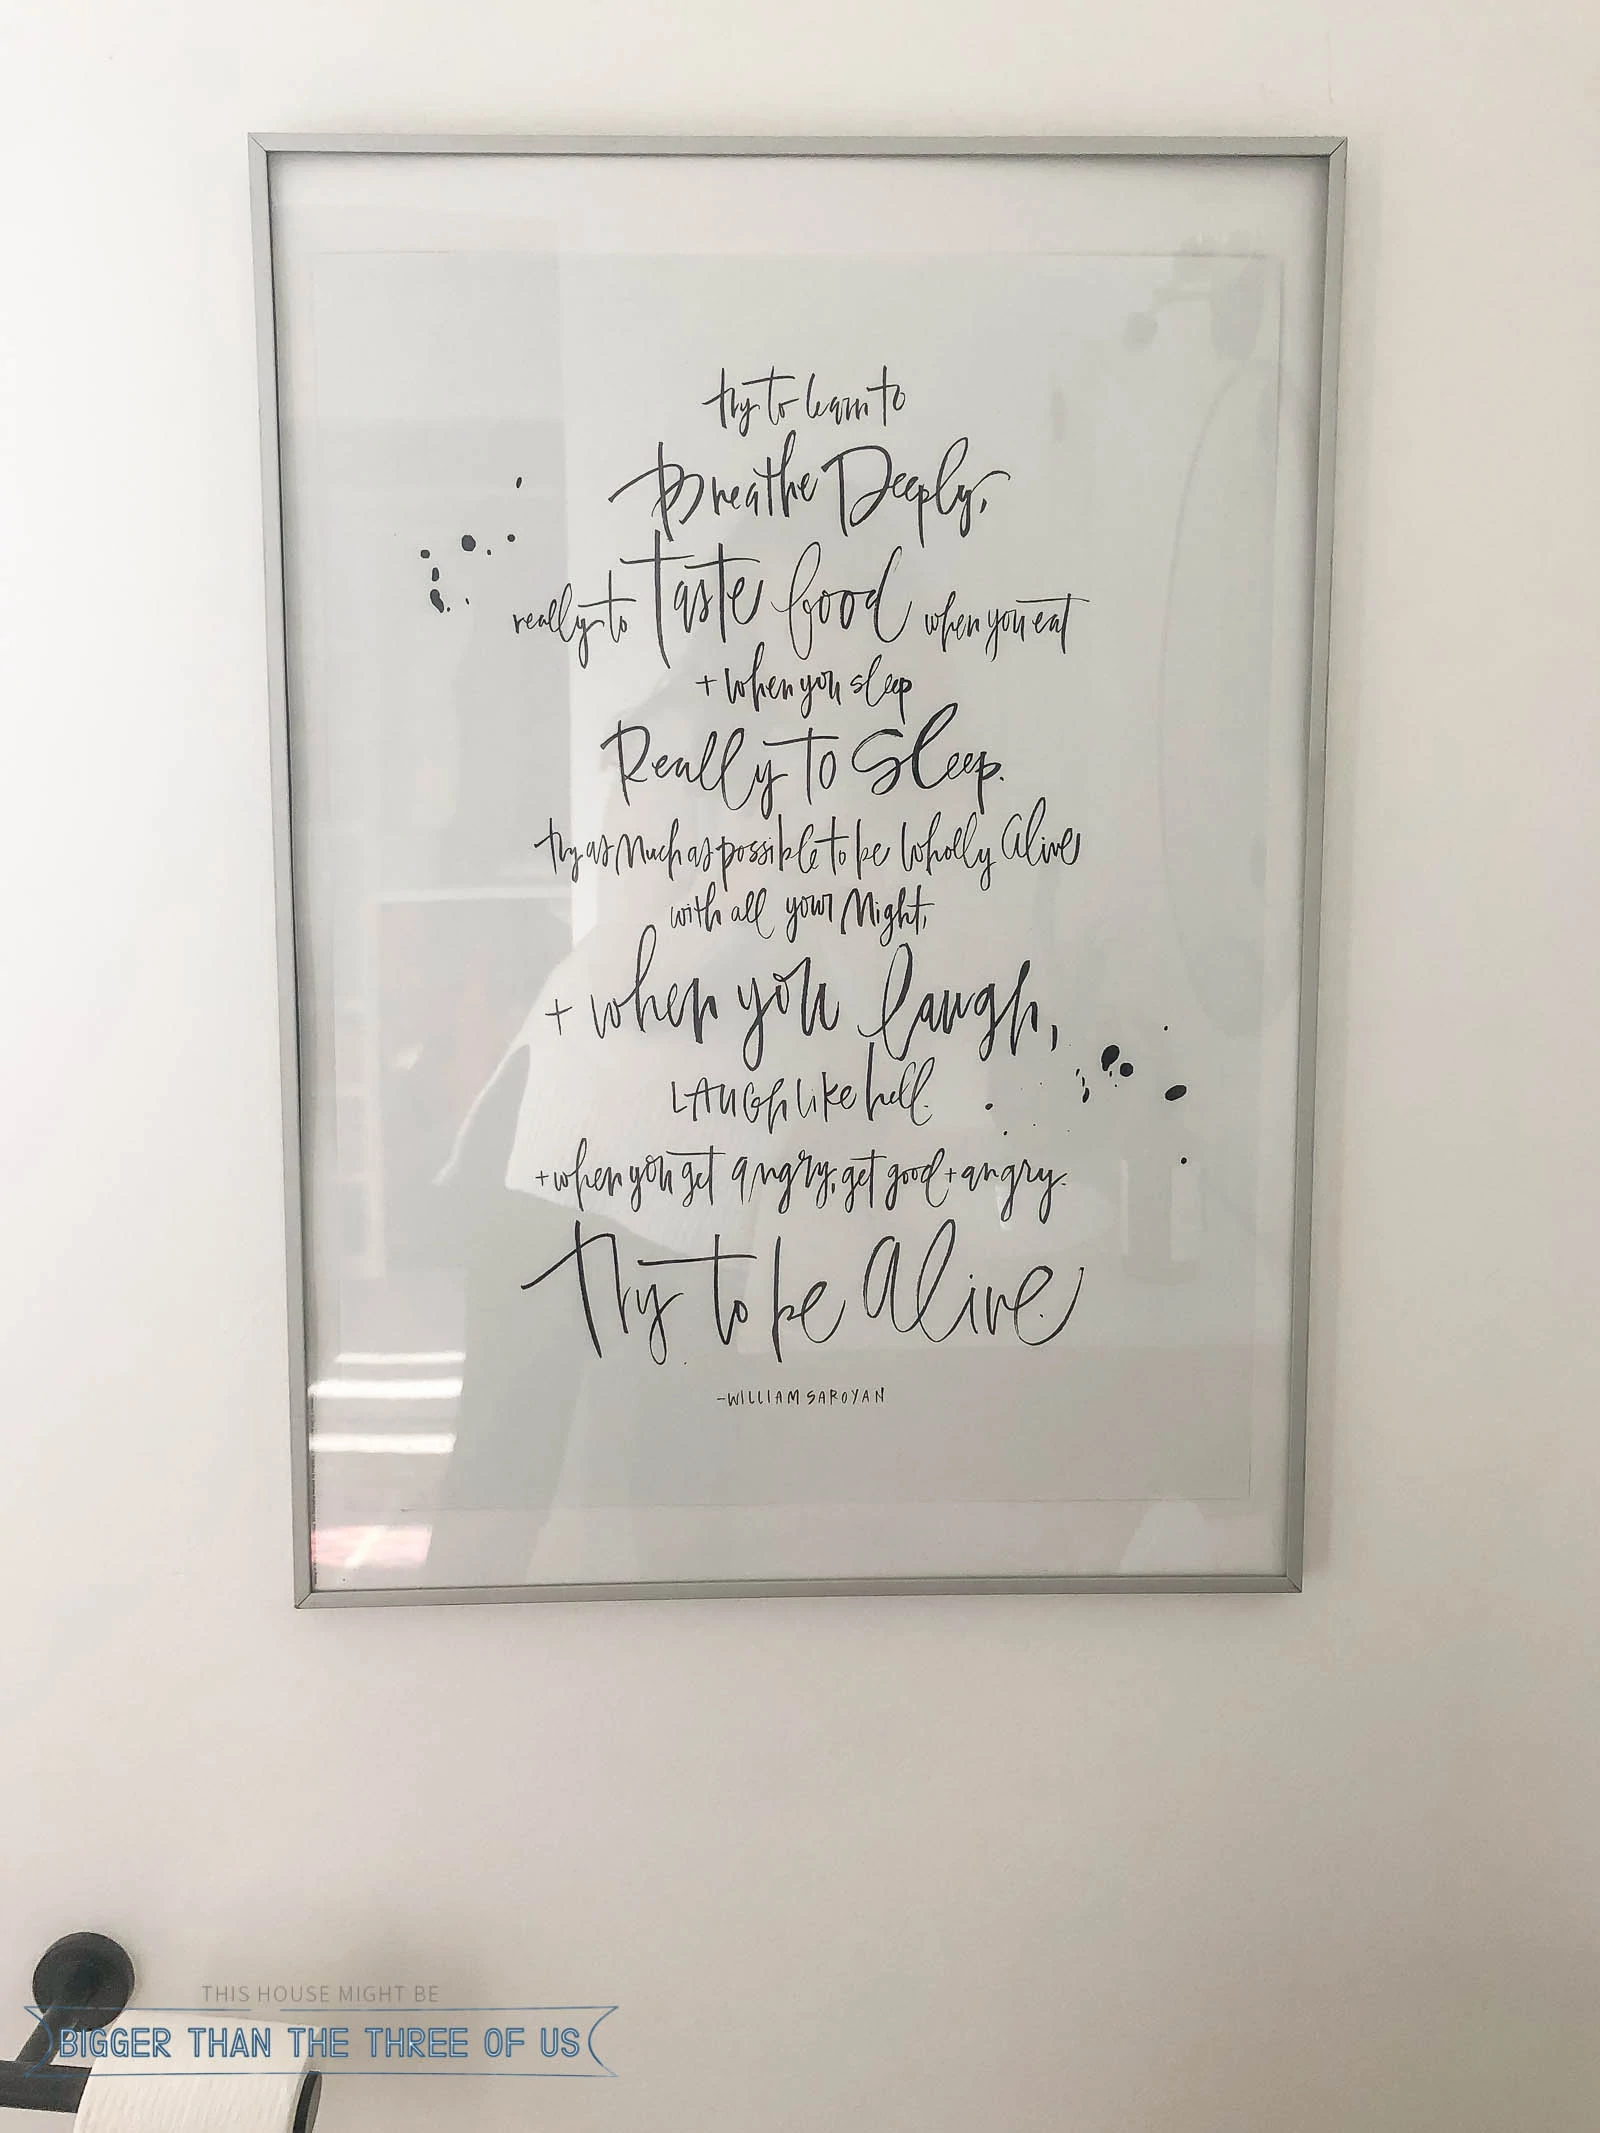 try to learn to
Breathe Deeply,
really to taste food when you eat
+ when you sleep
Really to Sleep.
try as Much as possible to be Wholly Alive
with all your Might,
+ when you laugh,
LAUGh like hell.
+ when you get angry, get good + angry.
Try to be Alive.
-WILLIAM SAROYAN
THIS HOUSE MIGHT BE
BIGGER THAN THE THREE OF US